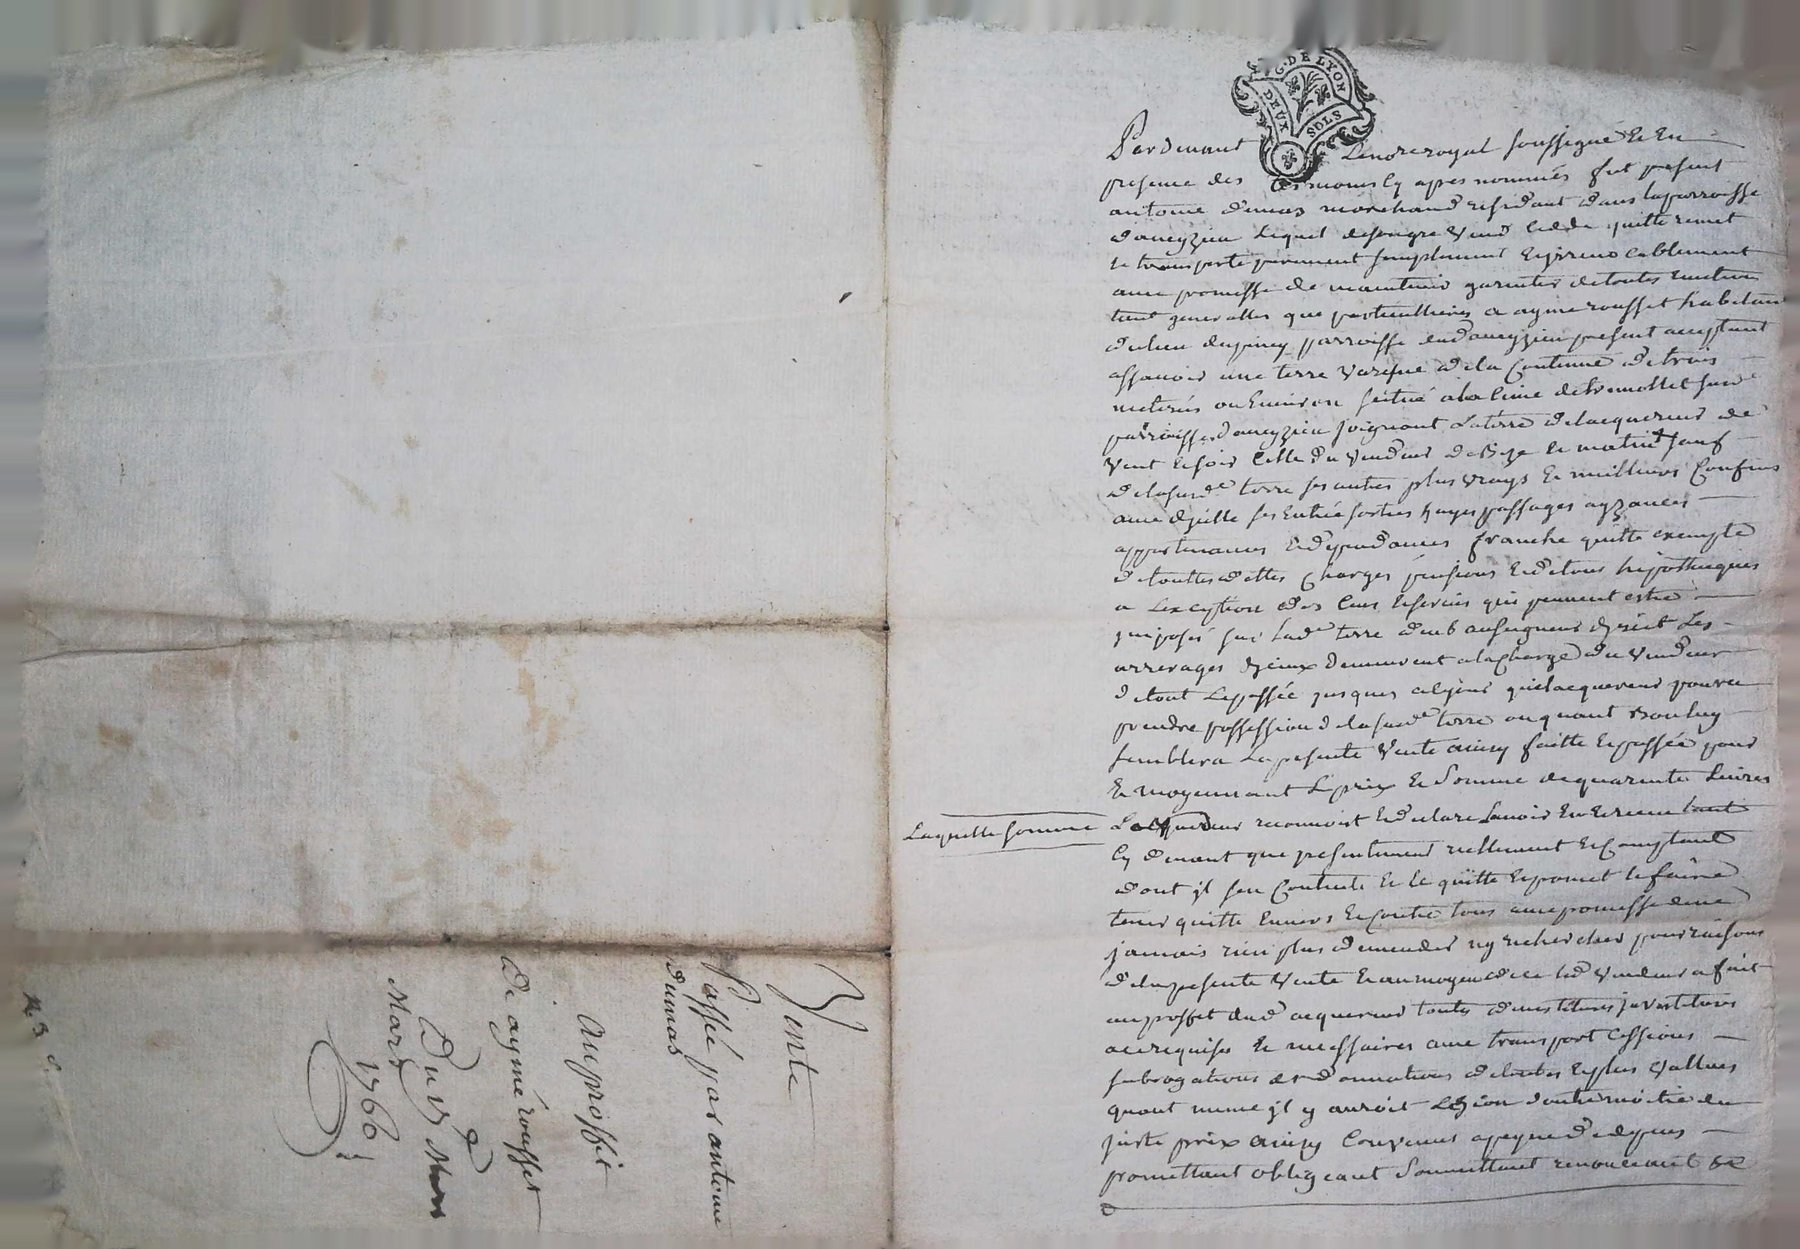 G. DE LYON
DEUX SOLS
Pardevant Le notre royal soussigné Et En
presence des tesmoins Cy apres nommés fut present
antoine dumas marchand residant dans la parroisse
daveyzieu Lequel de son gre Vend Cedde quitte remet
et transporte purement simplement Et jrrevocablement
avec promesse de maintenir garentir de toutes evictions
tant generalles que particullieres a aymé rousset habitant
du lieu parroisse dud aveyzieu present acceptant
assavoir une terre de la Contenue de trois
meterés ou Environ scitué a la susd
parroisse daveyzieu joignant La terre de lacquereur de
Vent Et soir Celle du Vendeur de Bize Et matin sauf
de la susde terre ses autres plus Vrays Et meilleurs Confins
avec djcelle ses Entrée sorties hayes passages ayzances
appartenances Et dependances franche quitte exempte
de touttes dettes Charges pensions Et de tous hipotheques
a Lexception des Cens Et servis qui peuvent estre
jmposés sur Lade terre au seigneur Les
arrerages djceux demeurent a la Charge du Vendeur
de tout Le passée jusques a ce jour que lacquereur pourra
prendre possession de la susde terre ou quant Bon luy
semblera La presente Vente ainsy faitte Et passée pour
Et moyennant Le prix Et Somme de quarante Livres
Laquelle somme Le Vendeur reconnoist Et declare Lavoir Eu Et receu tant
Cy devant que presentement reellement Et Comptant
dont jl sen Contente Et Le quitte Et promet Le faire
tenir quitte Envers Et Contre tous avec promesse de ne
jamais rien plus demender ny rechercher pour raison
de la presente Vente Et au moyen de ce led Vendeur a fait
au proffit dud acquereur toutes devestitures jnvestitures
a ce requises Et necessaires avec transport Cessions
subrogations Et donnations de toutes Et plus Vallues
quant meme jl y auroit Lezion doutre moitié du
juste prix ainsy Convenus a peyne de depens
promettant obligeant Soumettant renonceant &c
Vente
Passée par antoine
dumas
au proffit
de aymé rousset
Du
Mars
1766